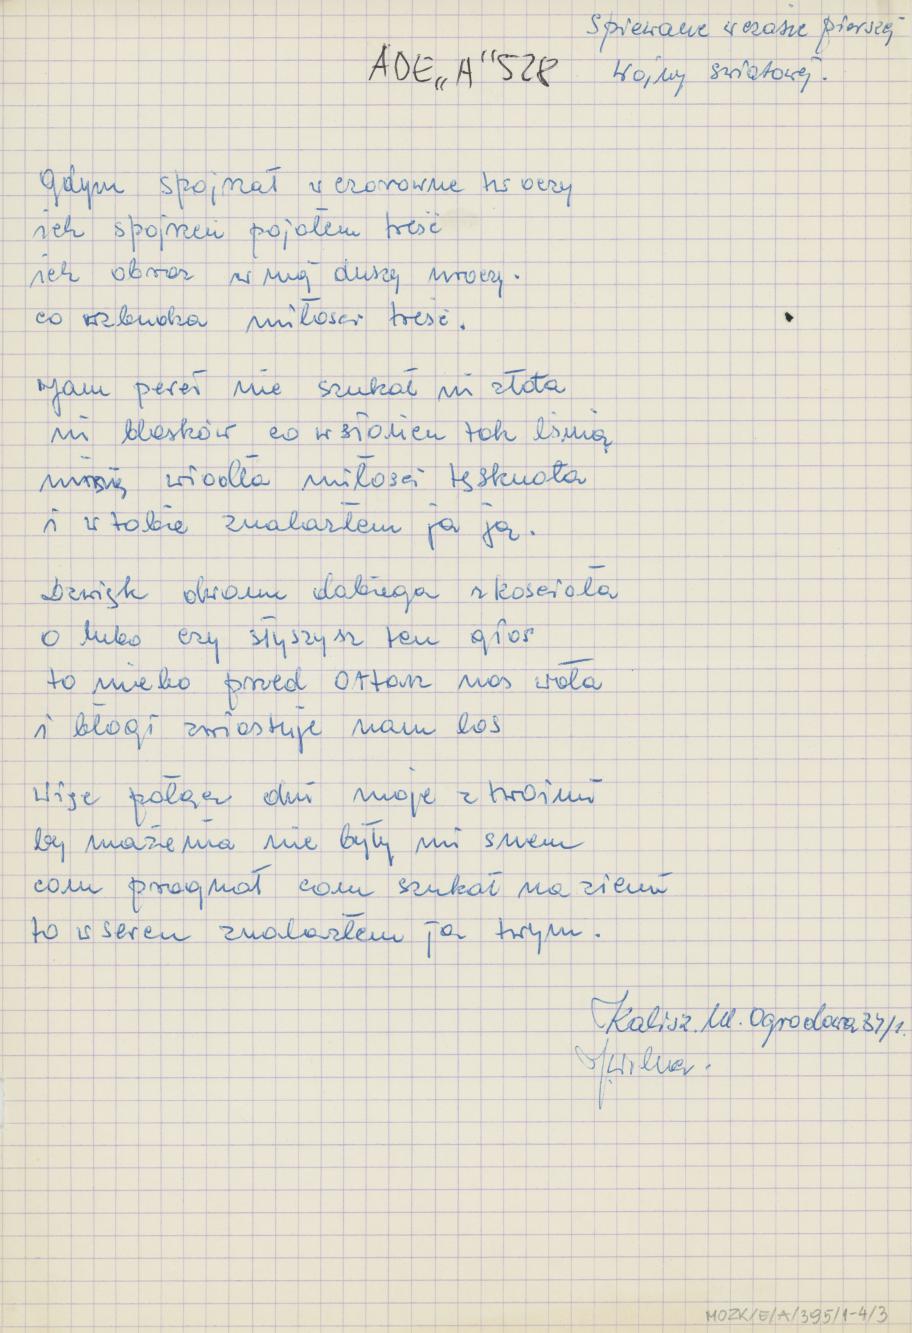 Spiewane w czasie pierszej
wojny swiatowej.
ADE „A" 528
Gdym spojrzał w czarowne tw oczy
ich spojrzeń pojołem treść
ich obraz w mą duszę wroczy.
co wzbudza miłosci treść.
Jam pereł nie szukał ni złota
ni blasków co w słońcu tak lsnią
wiodła miłosci tęsknota
i w tobie znalazłem ja ją.
Dzwięk dzwonu dobiega z koscioła
o lubo czy słyszysz ten głos
to niebo przed ołtarz nas woła
i błogi zwiastuje nam los
Więc połącz dni moje z twoimi
by mażenia nie były mi snem
com pragnoł com szukał na ziemi
to w sercu znalazłem ja twym.
Kalisz. Ul. Ogrodowa 37/1.
MOZK/E/A/395/1-4/3